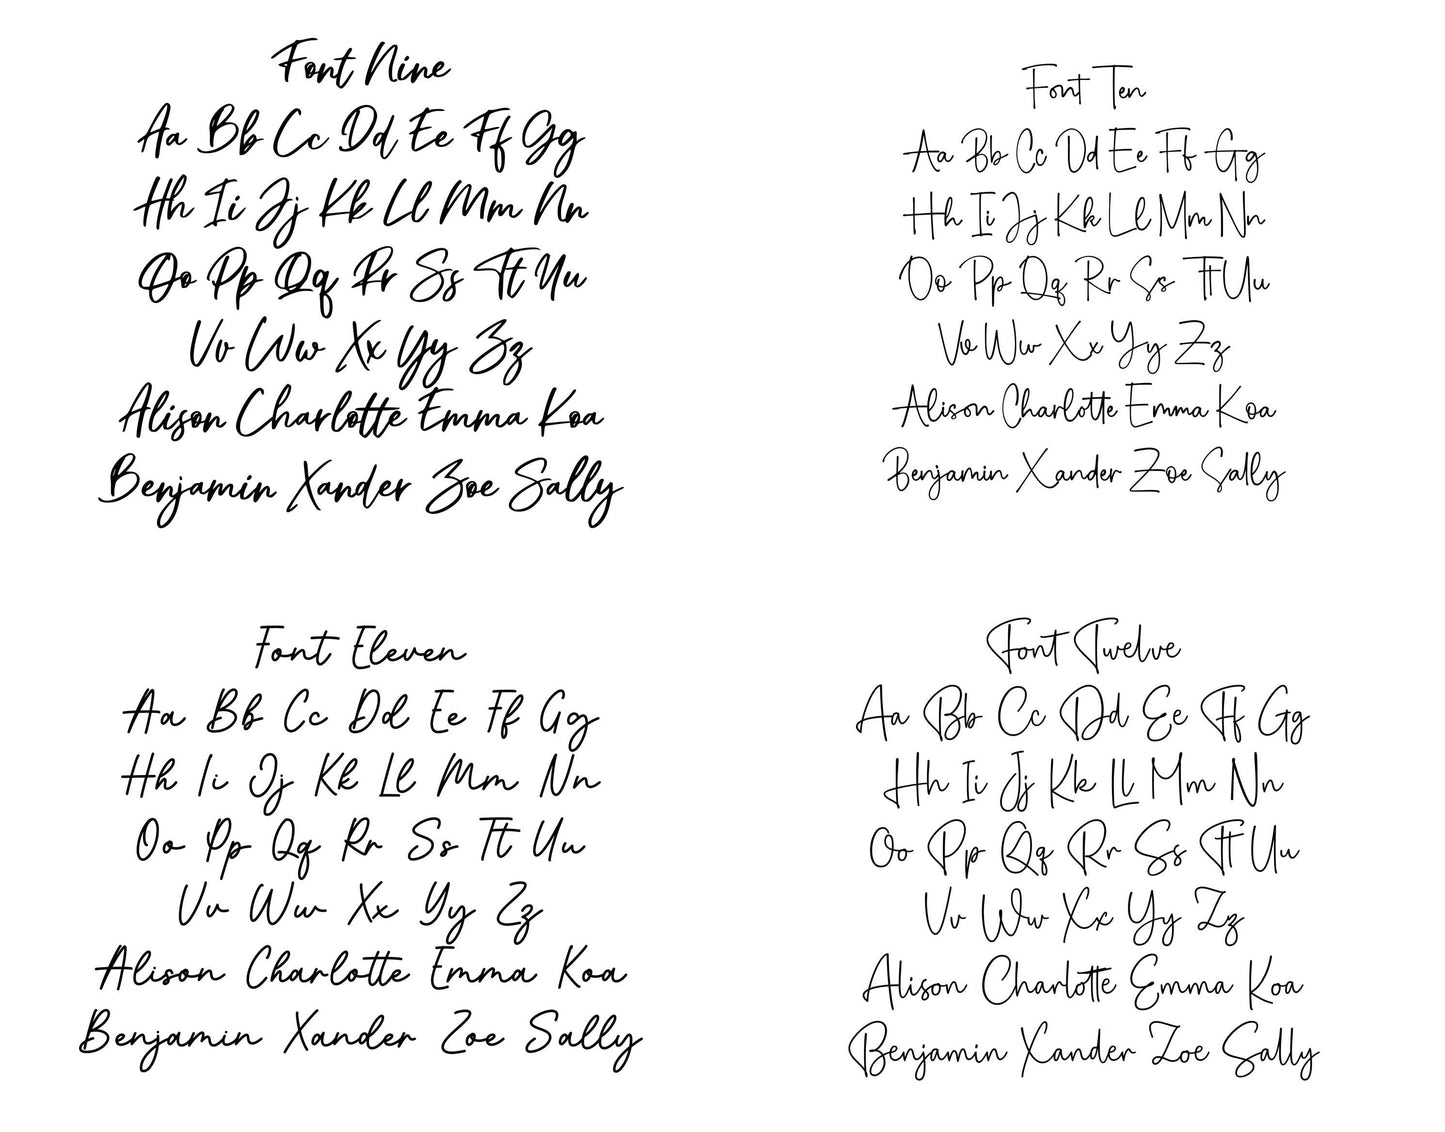 Font Nine
Aa Bb Cc Dd Ee Ff Gg
Hh Ii Jj Kk Ll Mm Nn
Oo Pp Qq Rr Ss Tt Uu
Vv Ww Xx Yy Zz
Alison Charlotte Emma Koa
Benjamin Xander Zoe Sally
Font Ten
Aa Bb Cc Dd Ee Ff Gg
Hh Ii Jj Kk Ll Mm Nn
Oo Pp Qq Rr Ss Tt Uu
Vv Ww Xx Yy Zz
Alison Charlotte Emma Koa
Benjamin Xander Zoe Sally
Font Eleven
Aa Bb Cc Dd Ee Ff Gg
Hh Ii Jj Kk Ll Mm Nn
Oo Pp Qq Rr Ss Tt Uu
Vv Ww Xx Yy Zz
Alison Charlotte Emma Koa
Benjamin Xander Zoe Sally
Font Twelve
Aa Bb Cc Dd Ee Ff Gg
Hh Ii Jj Kk Ll Mm Nn
Oo Pp Qq Rr Ss Tt Uu
Vv Ww Xx Yy Zz
Alison Charlotte Emma Koa
Benjamin Xander Zoe Sally